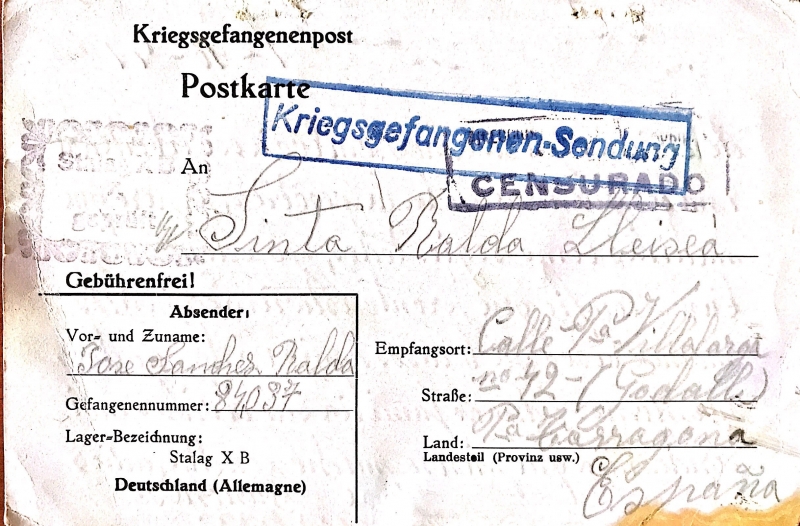 Kriegsgefangenenpost
Postkarte
Kriegsgefangenen-Sendung
CENSURADO
An
Sinta Ralda Lleisea
Gebührenfrei!
Absender:
Vor- und Zuname:
Jose Sanchez Ralda
Gefangenennummer: 84037
Lager-Bezeichnung:
Stalag X B
Deutschland (Allemagne)
Empfangsort: Calle Pa
Straße: no 42-(Godall)
Land: Pa Tarragona
Landesteil (Provinz usw.)
España